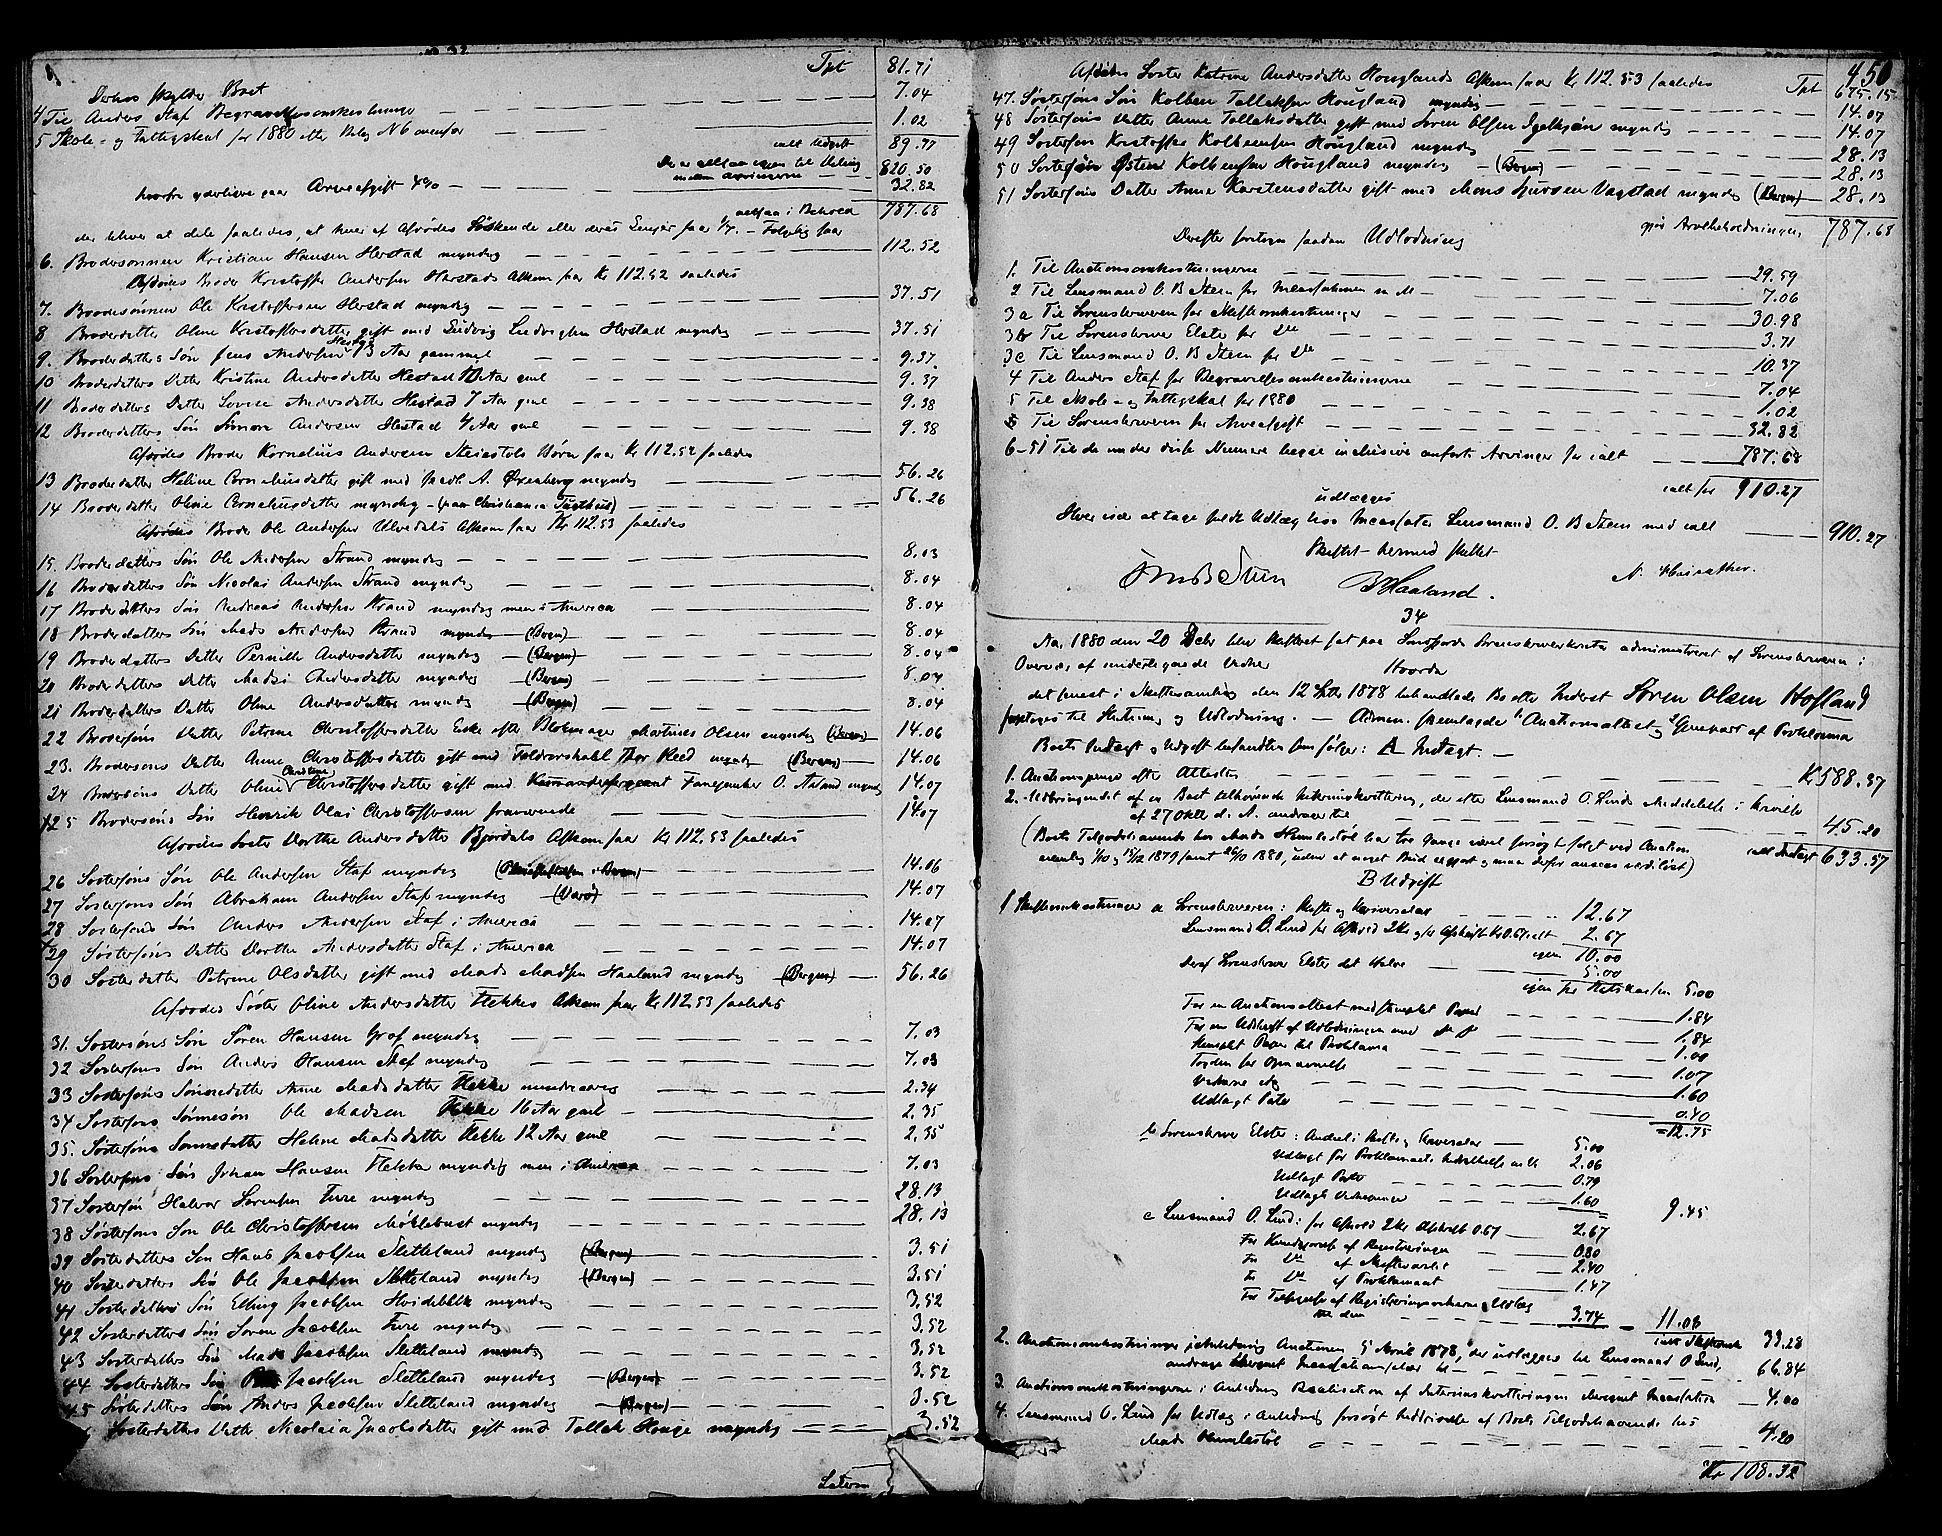 Tpt 81.71
Derhos skylder Boet
4 Til Anders Staf Begravelsesomkostninger 7.04
5 Skole- og Fattigskat for 1880 efter Bilag N 6 1.02
ialt Udgift 89.77
Der er altsaa igjen til Deling
mellem Arvingerne 820.50
hvorfra yderligere gaar Arveafgift 4% 32.82
altsaa i Behold 787.68
der bliver at dele saaledes, at hver af Afdødes Søskende eller deres Linjer faar 1/7. – Følgelig faar
6. Brodersønnen Kristian Hansen Herstad myndig 112.52
Afdødes Broder Kristoffer Andersen Herstads Afkom faar Kr 112.52 saaledes
7. Brodersønnen Ole Kristoffersen Herstad myndig 37.51
8 Broderdatter Oline Kristoffersdatter gift med Ludvig Ludvigsen Herstad myndig 37.51
9. Broderdatters Søn Jens Andersen Hestad 13 Aar gammel 9.37.
10 Broderdatters Datter Kristine Andersdatter Hestad 12 Aar gml 9.37
11 Broderdatters Datter Lovise Andersdatter Hestad 7 Aar gml 9.38
12 Broderdatters Søn Simon Andersen Hestad 4 Aar gml 9.38
Afdødes Broder Kornelius Andersen Steiestøls Børn faar Kr 112.52 saaledes
13 Broderdatter Heline Corneliusdatter gift med A. Øxenberg myndig 56.26
14 Broderdatter Oline Corneliusdatter myndig – (paa Christiania Tugthus) 56.26
Afdødes Broder Ole Andersen Ulvedals Afkom faar Kr 112.53 saaledes
15. Broderdatters Søn Ole Andersen Strand myndig 8.03
16 Broderdatters Søn Nicolai Andersen Strand myndig 8.04
17 Broderdatters Søn Andreas Andersen Strand myndig men i America 8.04
18 Broderdatters Søn Mads Andersen Strand myndig (Bergen) 8.04
19 Broderdatters Datter Pernille Andersdatter myndig (Bergen) 8.04
20 Broderdatters Datter Madsi Andersdatter myndig (Bergen) 8.04
21 Broderdatters Datter Oline Andersdatter myndig (Bergen) 8.04
22 Brodersøns Datter Petrine Christoffersdatter Enke efter Blokmager Martinus Olsen myndig (Bergen) 14.06
23. Brodersøns Datter Anne Christoffersdatter gift med Feldmarskahl Thor Reed myndig (Bergen) 14.06
24 Brodersøns Datter Oline Christine Christoffersdatter gift med Kommandersergeant Fanejunker O. Aaland myndig 14.07
25 Brodersøns Søn Henrik Olai Christoffersen fraværende 14.07
Afdødes Søster Dorthe Andersdatter Bjordals Afkom faar Kr 112.53 saaledes
26 Søstersøns Søn Ole Andersen Staf myndig 14.06
27 Søstersøns Søn Abraham Andersen Staf myndig (Værø) 14.07
28 Søstersøns Søn Anders Andersen Staf i America 14.07
29 Søstersøns Datter Dorthe Andersdatter Staf i America 14.07
30 Søsterdatter Petrine Olsdatter gift med Mads Madsen Haaland myndig (Bergen) 56.26
Afdødes Søster Oline Andersdatter Flekkes Afkom faar Kr 112.53 saaledes
31. Søstersøns Søn Søren Hansen Grof myndig 7.03
32 Søstersøns Søn Anders Hansen Staf myndig 7.03
33 Søstersøns Sønnedatter Anne Madsdatter Flekke mindreaarig 2.34
34 Søstersøns Sønnesøn Ole Madsen Flekke 16 Aar gml 2.35
35. Søstersøns Sønnedatter Heline Madsdatter Flekke 12 Aar gml 2.35
36 Søstersøns Søn Johan Hansen Flekke myndig men i America 7.03
37 Søstersøn Halvor Sørensen Fure myndig 28.13
38 Søstersøns Søn Ole Christoffersen Møklebust myndig 28.13
39 Søsterdatters Søn Hans Jacobsen Sletteland myndig (Bergen) 3.51
40 Søsterdatters Søn Ole Jacobsen Sletteland myndig (Bergen) 3.51
41 Søsterdatters Søn Elling Jacobsen Hvideblik myndig 3.52
42 Søsterdatters Søn Søren Jacobsen Fure myndig 3.52
43 Søsterdatters Søn Mads Jacobsen Sletteland myndig 3.52
44 Søsterdatters Søn Jacobsen Sletteland myndig (Bergen) 3.52
45 Søsterdatters Søn Anders Jacobsen Sletteland myndig (Bergen) 3.52
Søsterdatters Datter Nicolaia Jacobsdatter gift med Tollak Houge myndig 3.52
Lateris
450
Afdødes Søster Katrine Andersdatter Houglands Afkom faar Kr 112.53 saaledes Tpt 675.15
47. Søstersøns Søn Kolben Tollaksen Hougland myndig 14.07
48 Søstersøns Datter Anne Tollaksdatter gift med Søren Olsen Igelkjøn myndig 14.07
49 Søstersøn Kristoffer Kolbensen Hougland myndig 28.13
50 Søstersøn Østen Kolbensen Hougland myndig (Bergen) 28.13
51 Søstersøns Datter Anne Karstensdatter gift med Mons Jursen Vagstad myndig (Bergen) 28.13
gjør Arvebeholdningen, 787.68
Derefter foretoges saadan Udlodning
1. Til Auctionsomkostningerne 29.59
2 Til Lensmand O. B Steen for Incassationen m M 7.06
3a Til Sorenskriveren for Skifteomkostninger 30.98
3b Til Sorenskriver Elster for Do 3.71
3c Til Lensmand O. B Steen for Do 10.37
4 Til Anders Staf for Begravelsesomkostningerne 7.04
5 Til Skole- og Fattigskat for 1880 1.02
Til Sorenskriveren for Arveafgift 32.82
6-51 Til de under disse Numere begge inclusive anførte Arvinger for ialt 787.68
ialt for 910.27
udlægges
Hver især at tage fuldt Udlæg hos Incassator Lensmand O. B Steen med ialt 910.27
Skiftet hermed sluttet
B Steen B Haaland. N.
34
Aar 1880 den 20 Decbr blev Skifteret sat paa Søndfjords Sorenskriverkontor administreret af Sorenskriveren i
Overvær af undertegnede Vidner Hvorda
det senest i Skiftesamling den 12 Septbr 1878 behandlede Bo efter Inderst Søren Olsen Hofland
foretoges til Slutning og Udlodning. – Admin. fremlagde 1 Auctionsattest og 2 Gjenpart af Proklama
Boets Indtægt og Udgift befandtes som følger: A Indtægt. –
1. Auctionspenge efter Attesten Kr 588.37
2. Udbringendet af en Boet tilhørende Interimskvittering, der efter Lensmand O. Linds Meddelelse i Skrivelse
af 27 Oktbr d. A. andrager til 45.20
(Boets Tilgodehavende hos Mads Humlestøl har tre Gange været forsøgt solgt ved Auction
nemlig 1/10 og 15/12 1879 samt 26/10 1880, uden at noget Bud og maa derfor ansees værdiløst) ialt Indtægt 633.57
B Udgift
1 Skifteomkostninger a Sorenskriveren: Skifte og Skriversalær 12.67
Lensmand O. Lind for Afhold 2 Kr og for Afskrift Kr 0.67 ialt 2.67
igjen 10.00
Deraf Sorenskriver Elster det Halve 5.00
igjen for 5.00
For en Auctionsattest med stemplet Papir 1.84
For en Udskrift af Udlodningen med 1.84
Stemplet Papir til Proklama 1.00
1.07
Vidnerne 1.60
Udlagt Porto 0.40
= 12.75
b Sorenskriver Elster: Andel i Skifte og Skriversalær 5.00
Udlagt for Proklamaets Indrykkelse m M 2.06
Udlagt Porto 0.79
Udlagt 1.60
9.45
c Lensmand O. Lind: for Afhold 2 Kr Afskrift 0.67 2.67
For Kundgjørelse af Registreringen 0.80
For Do af Skiftevarslet 2.40
For Do af Proklamaet 1.47
For Tilsigelse af Registreringsvidnerne og Udlæg
til dem 3.74 11.08
ialt 33.28
2. Auctionsomkostninger Auctionen 5 April 1878, der udlægges til Lensmand O Lind,
andrage iberegnet Incassationssalær til 66.84
3. Auctionsomkostningerne i Anledning Realisation af Interimskvitteringen iberegnet Incassation 4.00
4. Lensmand O. Lind for Udlæg i Anledning forsøgt Inddrivelse af Boets Tilgodehavende hos
Mads Humlestøl 4.20
Kr 108.32